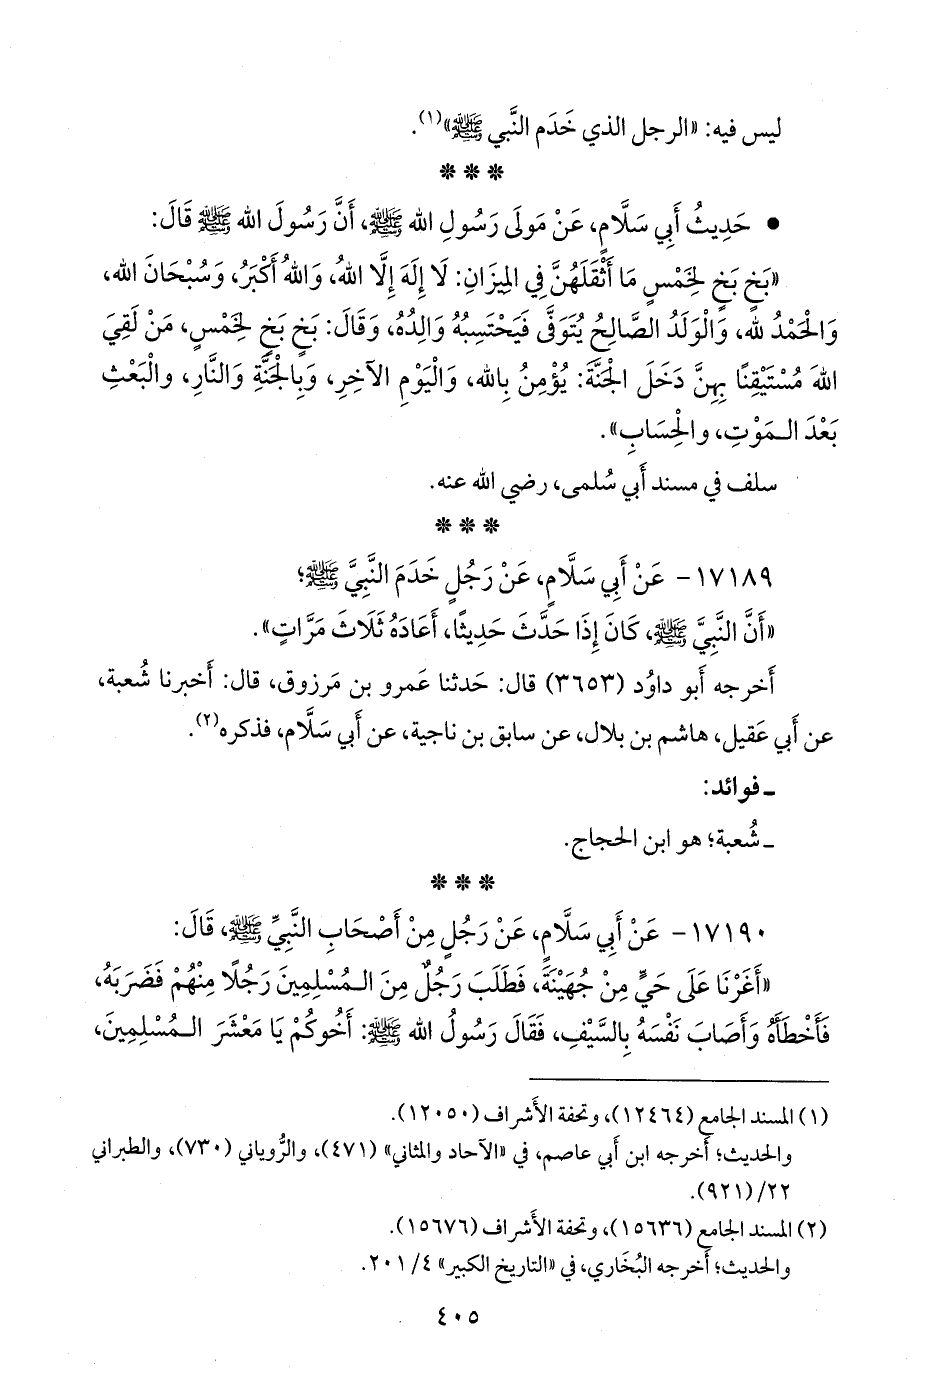 ليس فيه: «الرجل الذي خَدَم النَّبي ﷺ»(١).
* * *
• حَدِيثُ أَبِي سَلَّامٍ، عَنْ مَولَى رَسُولِ الله ﷺ، أَنَّ رَسُولَ الله ﷺ قَالَ:
«بَخٍ بَخٍ لِخَمْسٍ مَا أَثْقَلَهُنَّ فِي المِيزَانِ: لَا إِلَهَ إِلَّا اللهُ، وَاللهُ أَكْبَرُ، وَسُبْحَانَ الله،
وَالْحَمْدُ لله، وَالْوَلَدُ الصَّالِحُ يُتَوَفَّى فَيَحْتَسِبُهُ وَالِدُهُ، وَقَالَ: بَخٍ بَخٍ لِخَمْسٍ، مَنْ لَقِيَ
اللهَ مُسْتَيْقِنًا بِهِنَّ دَخَلَ الْجَنَّةَ: يُؤْمِنُ بِالله، وَالْيَوْمِ الآخِرِ، وَبِالْجَنَّةِ وَالنَّارِ، والْبَعْثِ
بَعْدَ الـمَوْتِ، والْحِسَابِ».
سلف في مسند أَبي سُلمى، رضي الله عنه.
* * *
١٧١٨٩- عَنْ أَبِي سَلَّامٍ، عَنْ رَجُلٍ خَدَمَ النَّبِيَّ ﷺ؛
«أَنَّ النَّبِيَّ ﷺ، كَانَ إِذَا حَدَّثَ حَدِيثًا، أَعَادَهُ ثَلَاثَ مَرَّاتٍ».
أَخرجه أَبو داوُد (٣٦٥٣) قال: حَدثنا عَمرو بن مَرزوق، قال: أَخبرنا شُعبة،
عن أَبي عَقيل، هاشم بن بلال، عن سابق بن ناجية، عن أَبي سَلَّام، فذكره(٢).
ـ فوائد:
ـ شُعبة؛ هو ابن الحجاج.
* * *
١٧١٩٠- عَنْ أَبِي سَلَّامٍ، عَنْ رَجُلٍ مِنْ أَصْحَابِ النَّبِيِّ ﷺ، قَالَ:
«أَغَرْنَا عَلَى حَيٍّ مِنْ جُهَيْنَةَ، فَطَلَبَ رَجُلٌ مِنَ الـمُسْلِمِينَ رَجُلًا مِنْهُمْ فَضَرَبَهُ،
فَأَخْطَأَهُ وَأَصَابَ نَفْسَهُ بِالسَّيْفِ، فَقَالَ رَسُولُ الله ﷺ: أَخُوكُمْ يَا مَعْشَرَ الـمُسْلِمِينَ،
(١) المسند الجامع (١٢٤٦٤)، وتحفة الأَشراف (١٢٠٥٠).
والحديث؛ أَخرجه ابن أَبي عاصم، في «الآحاد والمثاني» (٤٧١)، والرُّوياني (٧٣٠)، والطبراني
٢٢/(٩٢١).
(٢) المسند الجامع (١٥٦٣٦)، وتحفة الأَشراف (١٥٦٧٦).
والحديث؛ أَخرجه البُخَاري، في «التاريخ الكبير» ٤/ ٢٠١.
٤٠٥